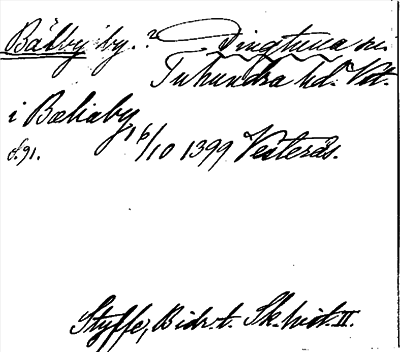 Bälby by.? Dingtuna sn.
Tuhundra hd. Vstm.
i Bæliaby
16/10 1399 Vesterås.
s. 91.
Styffe, Bidr. t. Sk. hist. II.